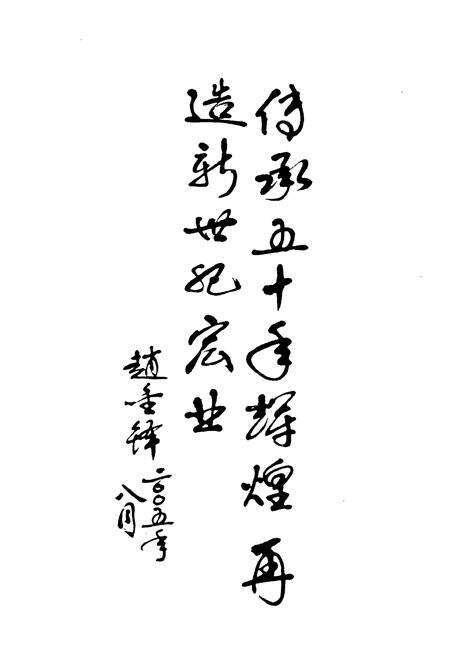 传承五十年辉煌再
造新世纪宏业
赵金铎
二〇〇五年
八月